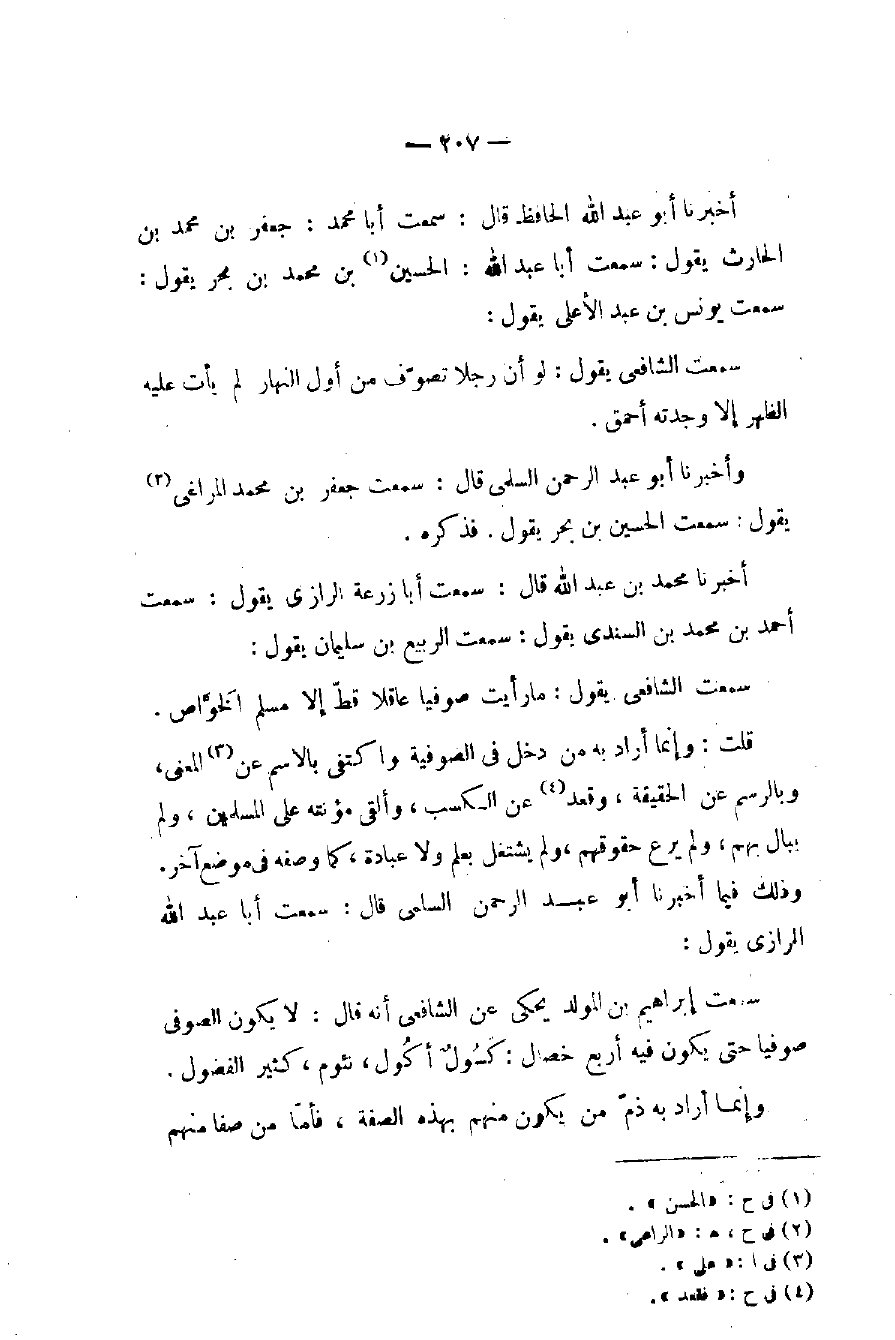 — ٢٠٧ —
أخبرنا أبو عبد الله الحافظ قال : سمعت أبا محمد : جعفر بن محمد بن
الحارث يقول : سمعت أبا عبد الله : الحسين(١) بن محمد بن بحر يقول :
سمعت يونس بن عبد الأعلى يقول :
سمعت الشافعى يقول : لو أن رجلا تصوّف من أول النهار لم يأت عليه
الظهر إلا وجدته أحمق .
وأخبرنا أبو عبد الرحمن السلمى قال : سمعت جعفر بن محمد المراغى(٢)
يقول : سمعت الحسين بن بحر يقول . فذكره .
أخبرنا محمد بن عبد الله قال : سمعت أبا زرعة الرازى يقول : سمعت
أحمد بن محمد بن السندى يقول : سمعت الربيع بن سليمان يقول :
سمعت الشافعى يقول : ما رأيت صوفيا عاقلا قطّ إلا مسلم الخوّاص .
قلت : وإنما أراد به من دخل فى الصوفية واكتفى بالاسم عن(٣) المعنى،
وبالرسم عن الحقيقة ، وقعد(٤) عن الكسب ، وألقى مؤنته على المسلمين ، ولم
يبال بهم ، ولم يرع حقوقهم ، ولم يشتغل بعلم ولا عبادة ، كما وصفه فى موضع آخر.
وذلك فيما أخبرنا أبو عبد الرحمن السلمى قال : سمعت أبا عبد الله
الرازى يقول :
سمعت إبراهيم بن المولد يحكى عن الشافعى أنه قال : لا يكون الصوفى
صوفيا حتى يكون فيه أربع خصال : كَسُولٌ أَكُول، نئوم ، كثير الفضول .
وإنما أراد به ذمّ من يكون منهم بهذه الصفة ، فأمّا من صفا منهم
(١) فى ح : «الحسن» .
(٢) فى ح ، ه : «الراعى» .
(٣) فى ا : « على » .
(٤) فى ح : « فقعد ».